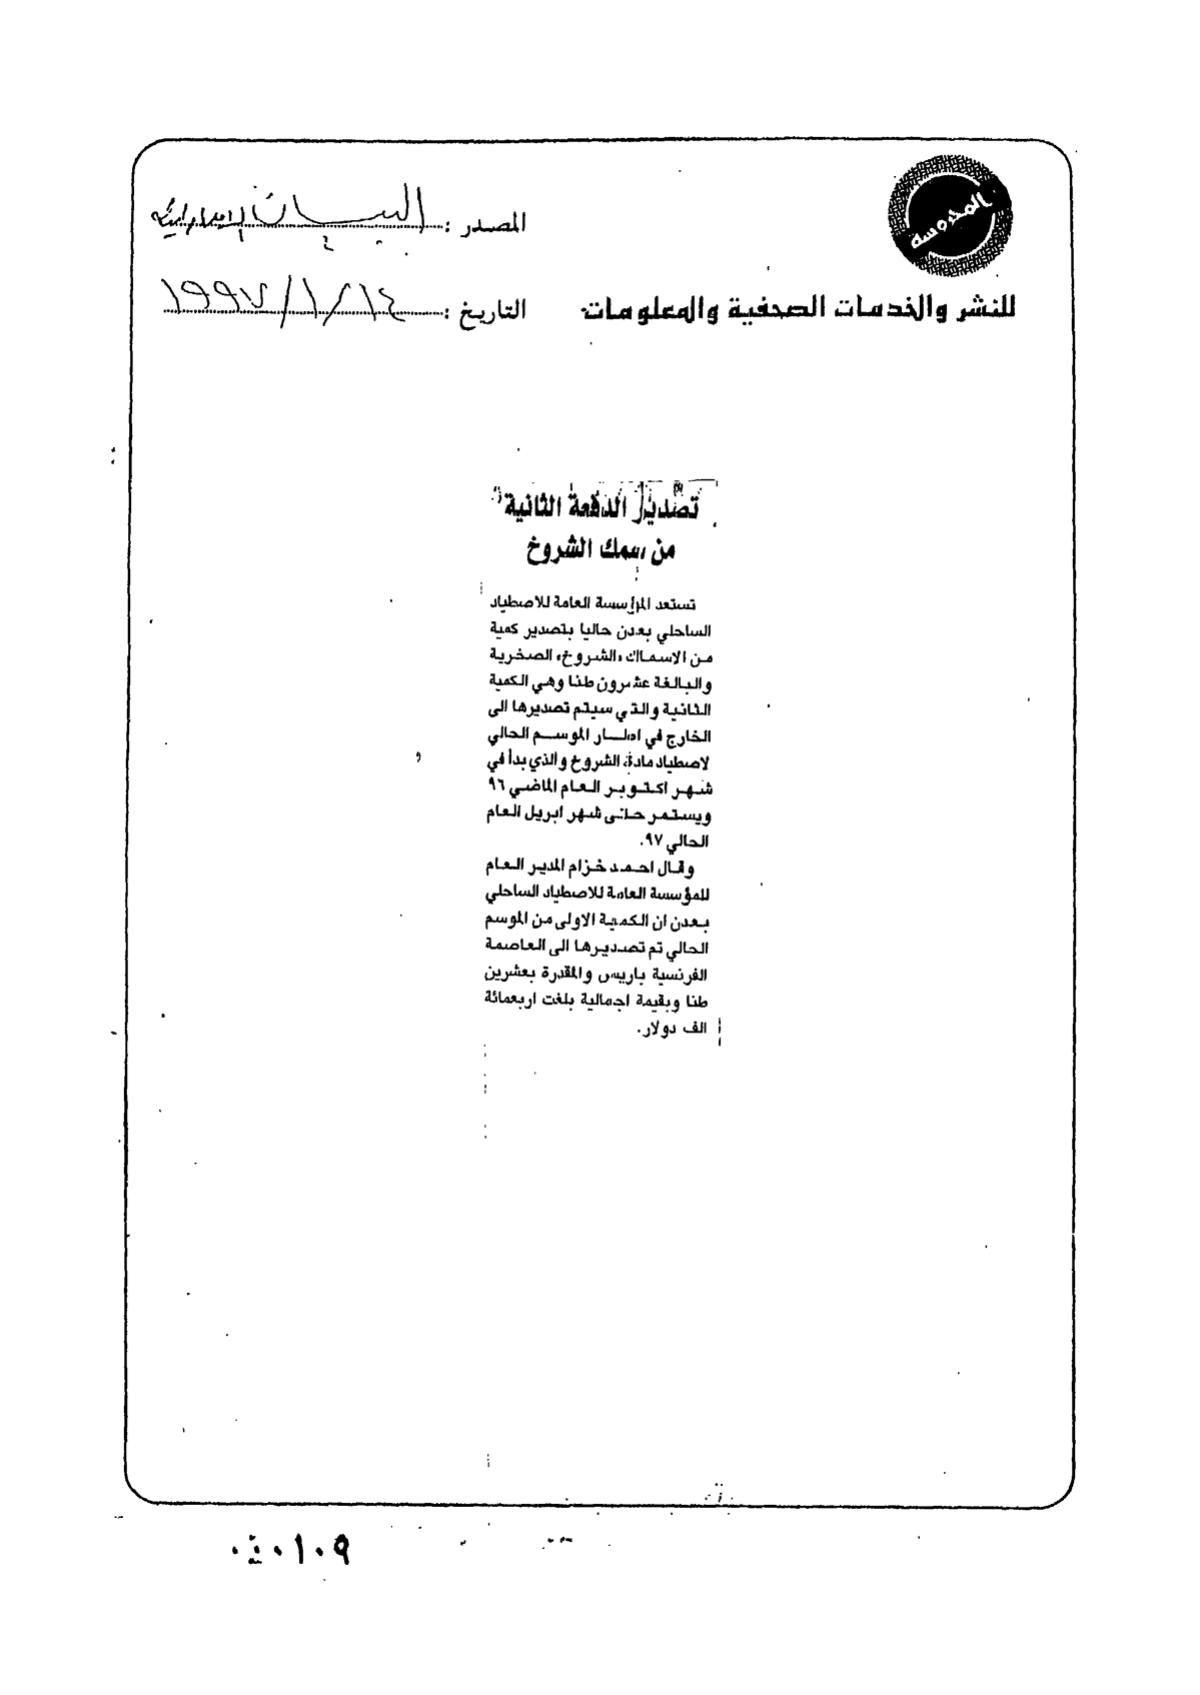 المحروسة
للنشر والخدمات الصحفية والمعلومات
المصدر : البيان الإماراتية
التاريخ : ١٩٩٧/١/١٤
تصدير الدفعة الثانية
من سمك الشروخ
تستعد المؤسسة العامة للاصطياد
الساحلي بعدن حاليا بتصدير كمية
من الاسماك «الشروخ» الصخرية
والبالغة عشرون طنا وهي الكمية
الثانية والتي سيتم تصديرها الى
الخارج في اطار الموسم الحالي
لاصطياد مادة الشروخ والذي بدأ في
شهر اكتوبر العام الماضي ٩٦
ويستمر حتى شهر ابريل العام
الحالي ٩٧.
وقال احمد خزام المدير العام
للمؤسسة العامة للاصطياد الساحلي
بعدن ان الكمية الاولى من الموسم
الحالي تم تصديرها الى العاصمة
الفرنسية باريس والمقدرة بعشرين
طنا وبقيمة اجمالية بلغت اربعمائة
الف دولار.